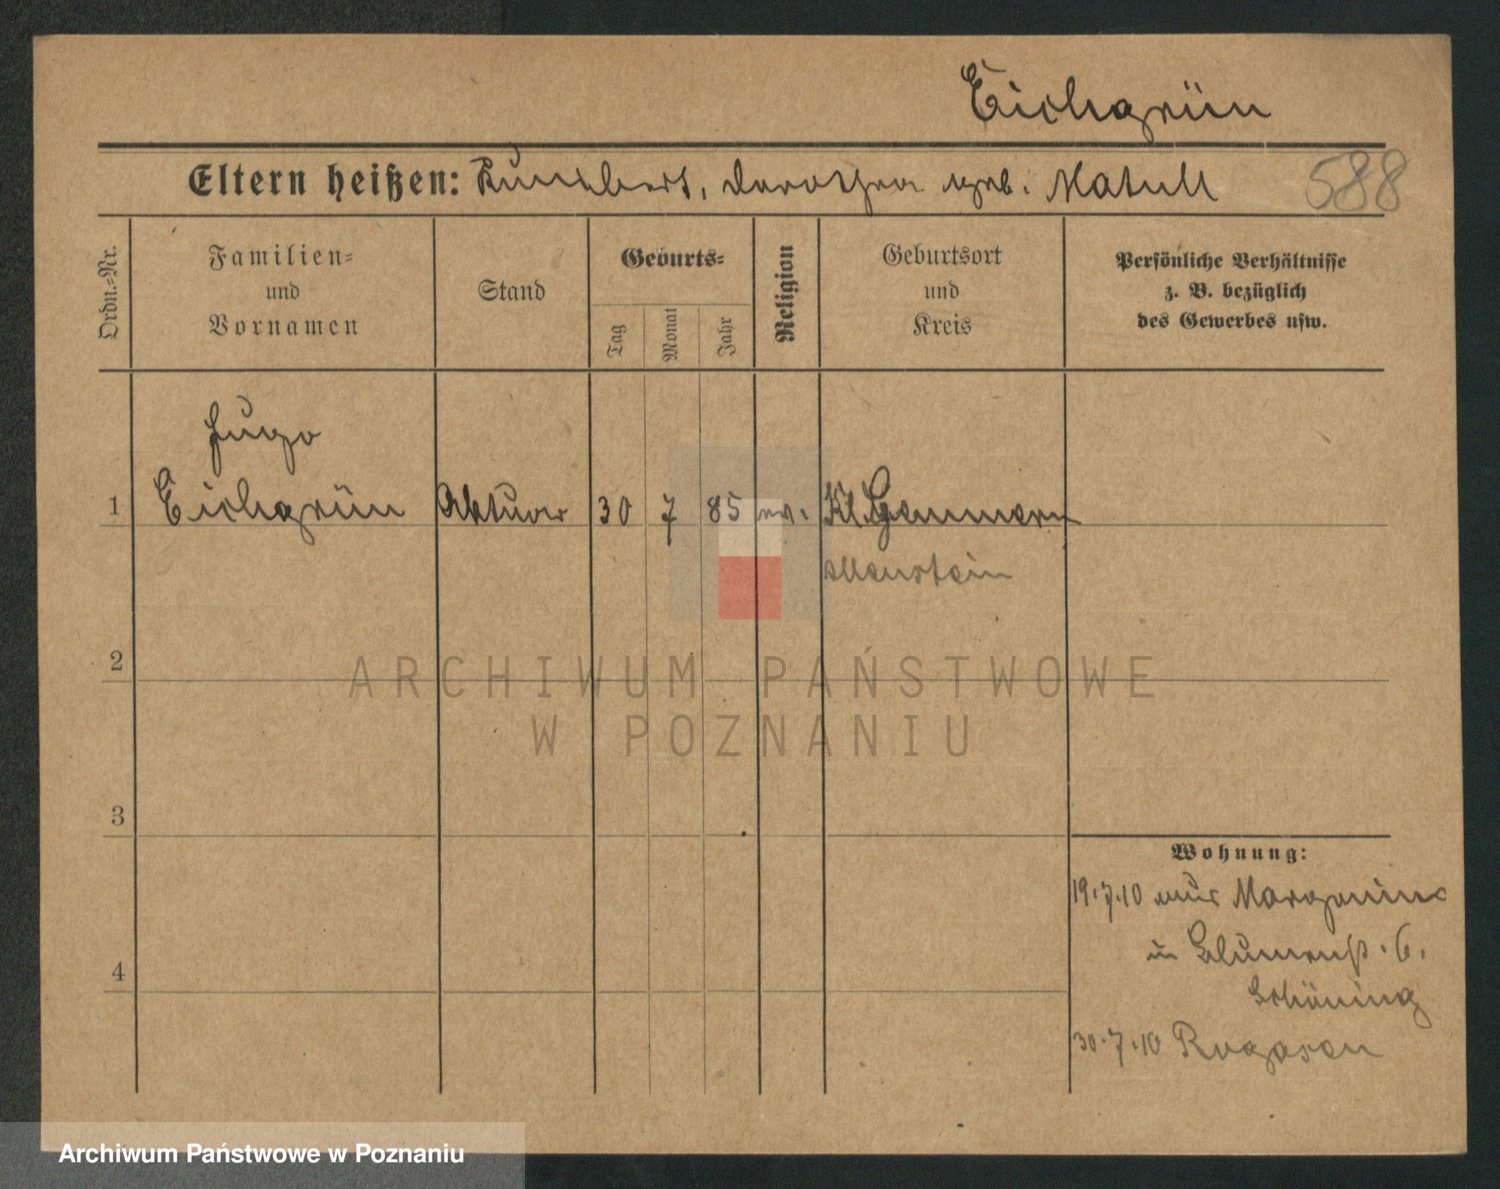 Eichgrün
Eltern heißen: Kunibert, Dorothea geb. Matull
588
Ordn.-Nr.
Familien- und Vornamen
Stand
Geburts-
Tag
Monat
Jahr
Religion
Geburtsort und Kreis
Persönliche Verhältnisse
z. B. bezüglich
des Gewerbes usw.
Hugo
1 Eichgrün Aktuar 30 7 85 ev. Kl. Gemmern
Allenstein
2
ARCHIWUM PAŃSTWOWE
W POZNANIU
3
Wohnung:
19.7.10 aus Margonin
in Blumenstr. 6.
Schöning
4
30.7.10 Rogasen
Archiwum Państwowe w Poznaniu